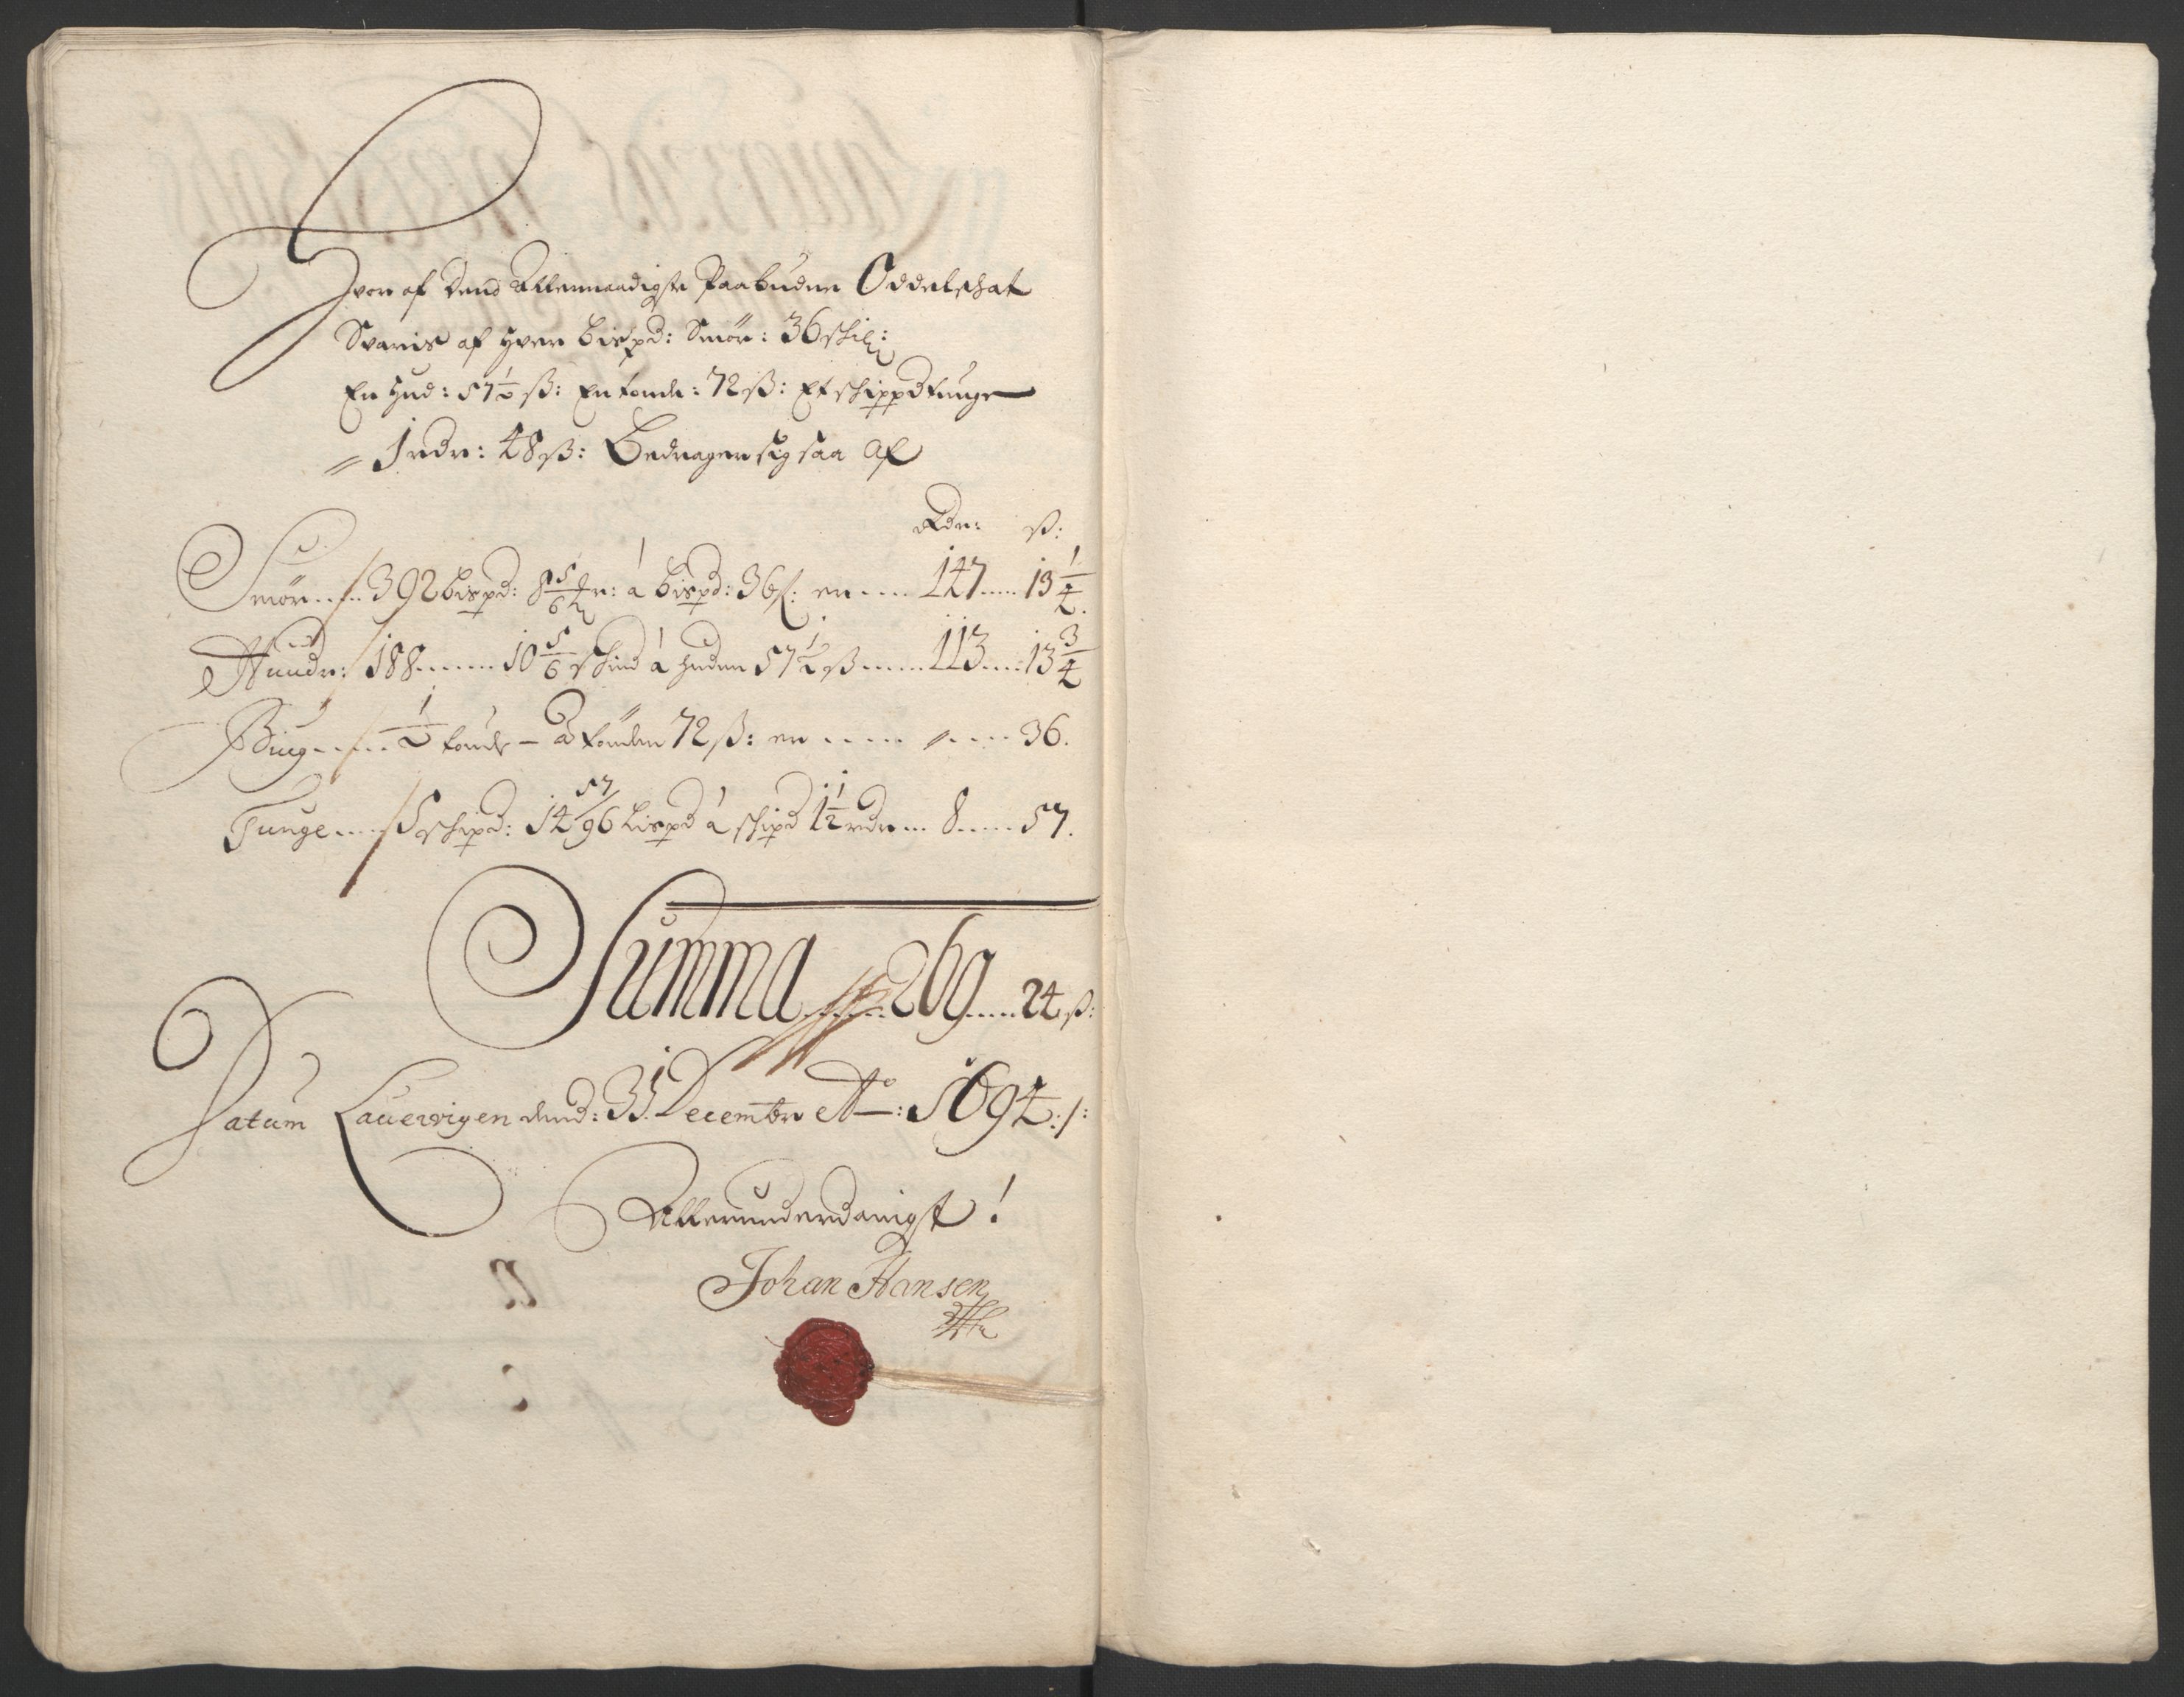 Hvor af Dend Allernaadigste Paabudne Oddelschat
Svaris af hver Bispd: Smör: 36 skil:
En Hud: 57½ ß: En tønde: 72 ß: Et schippdtunge
1 rdr: 48 ß: Bedrager sig saa Af
Rdr: ß:
Smör .... 392 bispd: 8 5/6 mr: á bispd: 36 ß: er .... 147 .... 13 1/4.
Huudr: 188 ...... 10 5/6 skind á huden 57½ ß ..... 113 ... 13 3/4
Biug ..... ½ tønde - á tønden 72 ß: er .... " .... 36.
Tunge .... 5 schipd: 14 57/96 Lispd á schipd 1½ rdr ... 8 .... 57.
Summa ...... 269 ..... 24 ß:
Datum Lauervigen dend: 31 Decembr Ao: 1694 :/:
Allerunderdanigst!
Johan Hansen